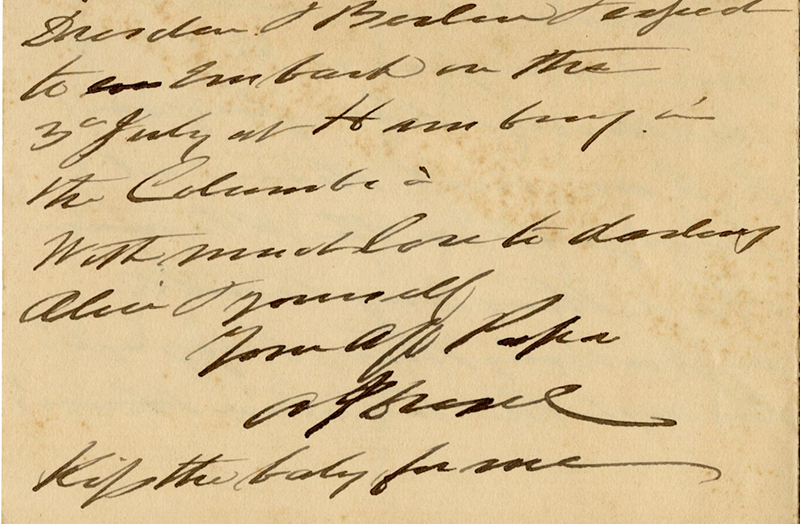 Dresden & Berlin & expect
to embark on the
3d July at Hamburg in
the Columbia
With much love to darling
Alice & yourself
Your aff Papa
A J Drexel
Kiss the baby for me